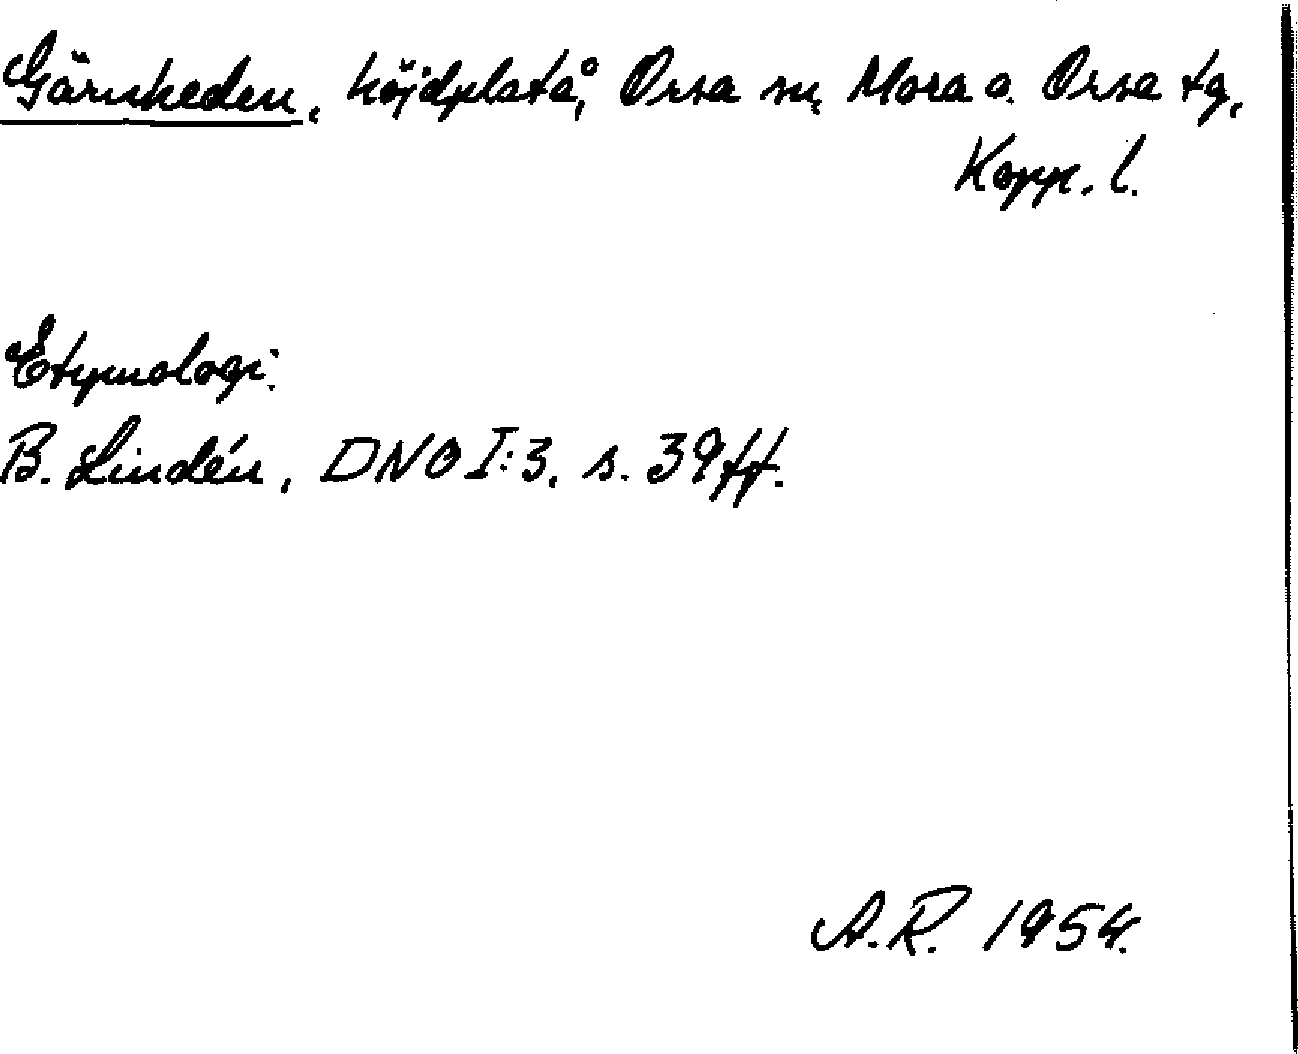 Gärnheden, höjdplatå, Orsa sn, Mora o. Orsa tg,
Kopp. l.
Etymologi:
B. Lindén, DNO I:3, s. 39 ff.
A.R. 1954.